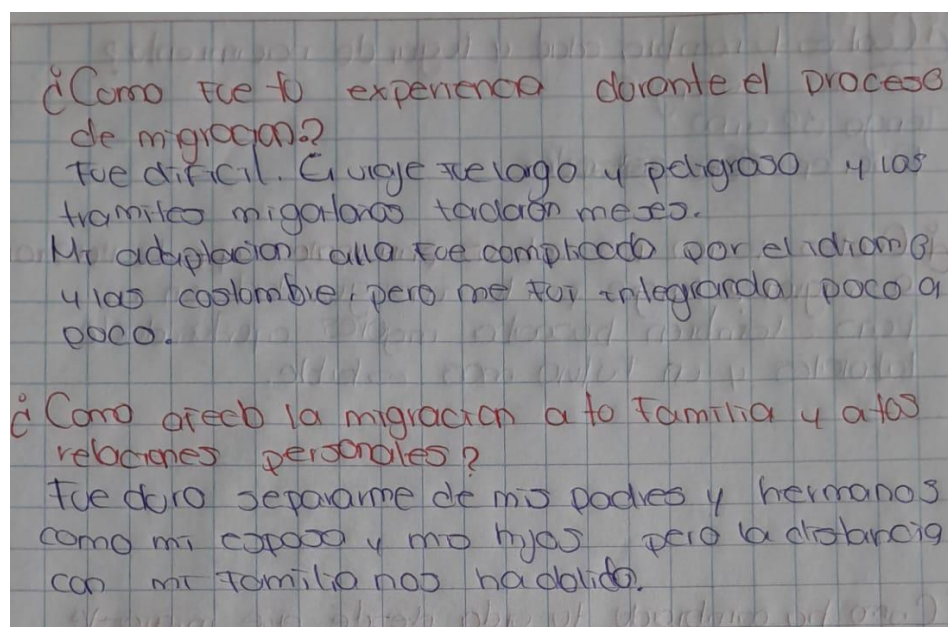 ¿Como fue tu experienca durante el proceso
de migracion?
Fue dificil. El viaje fue largo y peligroso y las
tramites migatorios tardaron meses.
Mi adaptacion alla fue complicado por el idioma
y las costombre, pero me fui integranda poco a
poco.
¿Como afecto la migracion a tu familia y a tus
relaciones personales?
Fue duro separarme de mis padres y hermanos
como mi esposo y mis hijos pero la distancia
con mi familia nos ha dolido.